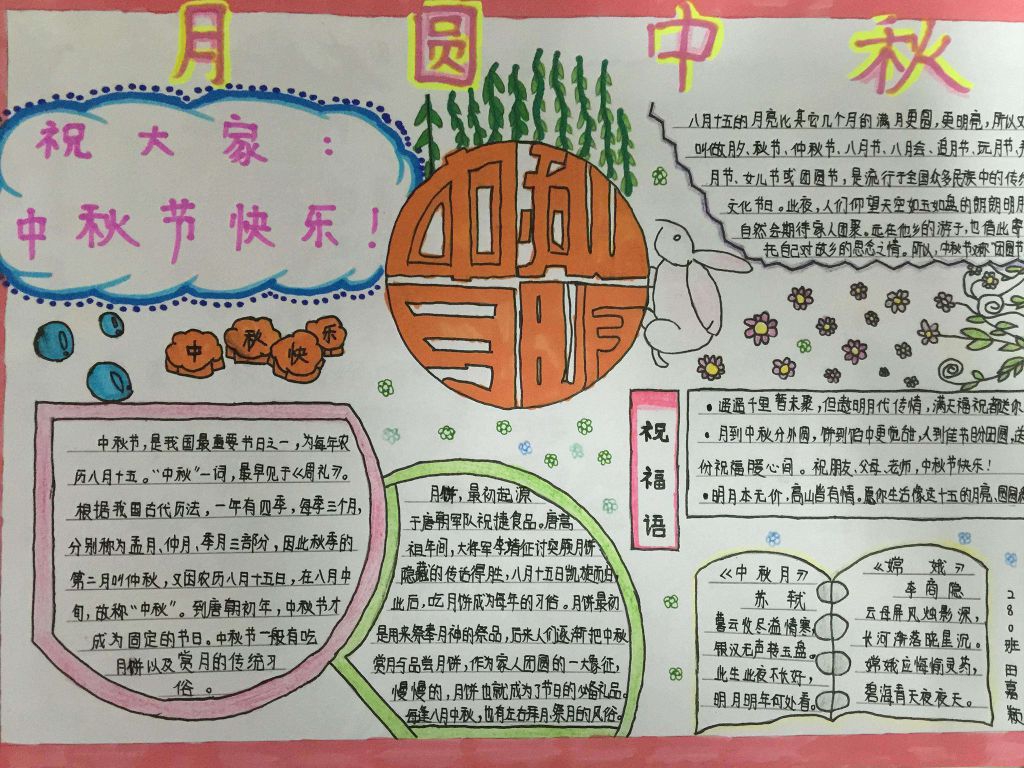 月圆中秋
祝大家：
中秋节快乐！
中秋
月明
中秋快乐
八月十五的月亮比其它几个月的满月更圆，更明亮，所以又
叫做月夕、秋节、仲秋节、八月节、八月会、追月节、玩月节、
月节、女儿节或团圆节，是流行于全国众多民族中的传统
文化节日。此夜，人们仰望天空如玉如盘的朗朗明月
自然会期待家人团聚。远在他乡的游子，也借此寄
托自己对故乡的思念之情。所以，中秋节又称“团圆节
中秋节，是我国最重要节日之一，为每年农
历八月十五。“中秋”一词，最早见于《周礼》。
根据我国古代历法，一年有四季，每季三个月，
分别称为孟月、仲月、季月三部分，因此秋季的
第二月叫仲秋，又因农历八月十五日，在八月中
旬，故称“中秋”。到唐朝初年，中秋节才
成为固定的节日。中秋节一般有吃
月饼以及赏月的传统习
俗。
月饼，最初起源
于唐朝军队祝捷食品。唐高
祖年间，大将军李靖征讨突厥月饼
隐藏的传话得胜，八月十五日凯旋而归
此后，吃月饼成为每年的习俗。月饼最初
是用来祭奉月神的祭品，后来人们逐渐把中秋
赏月与品尝月饼，作为家人团圆的一大象征，
慢慢的，月饼也就成为了节日的必备礼品。
每逢八月中秋，也有左右拜月祭月的风俗。
祝福语
•遥遥千里暂未聚，但邀明月代传情，满天福祝都送你
•月到中秋分外圆，饼到怕中更觉甜，人到佳节盼团圆，送
份祝福暖心间。祝朋友、父母、老师，中秋节快乐！
•明月本无价，高山皆有情。愿你生活像这十五的月亮，圆圆
《中秋月》
苏轼
暮云收尽溢情寒，
银汉无声转玉盘。
此生此夜不长好，
明月明年何处看。
《嫦娥》
李商隐
云母屏风烛影深，
长河渐落晓星沉。
嫦娥应悔偷灵药，
碧海青天夜夜天。
280班田嘉颖